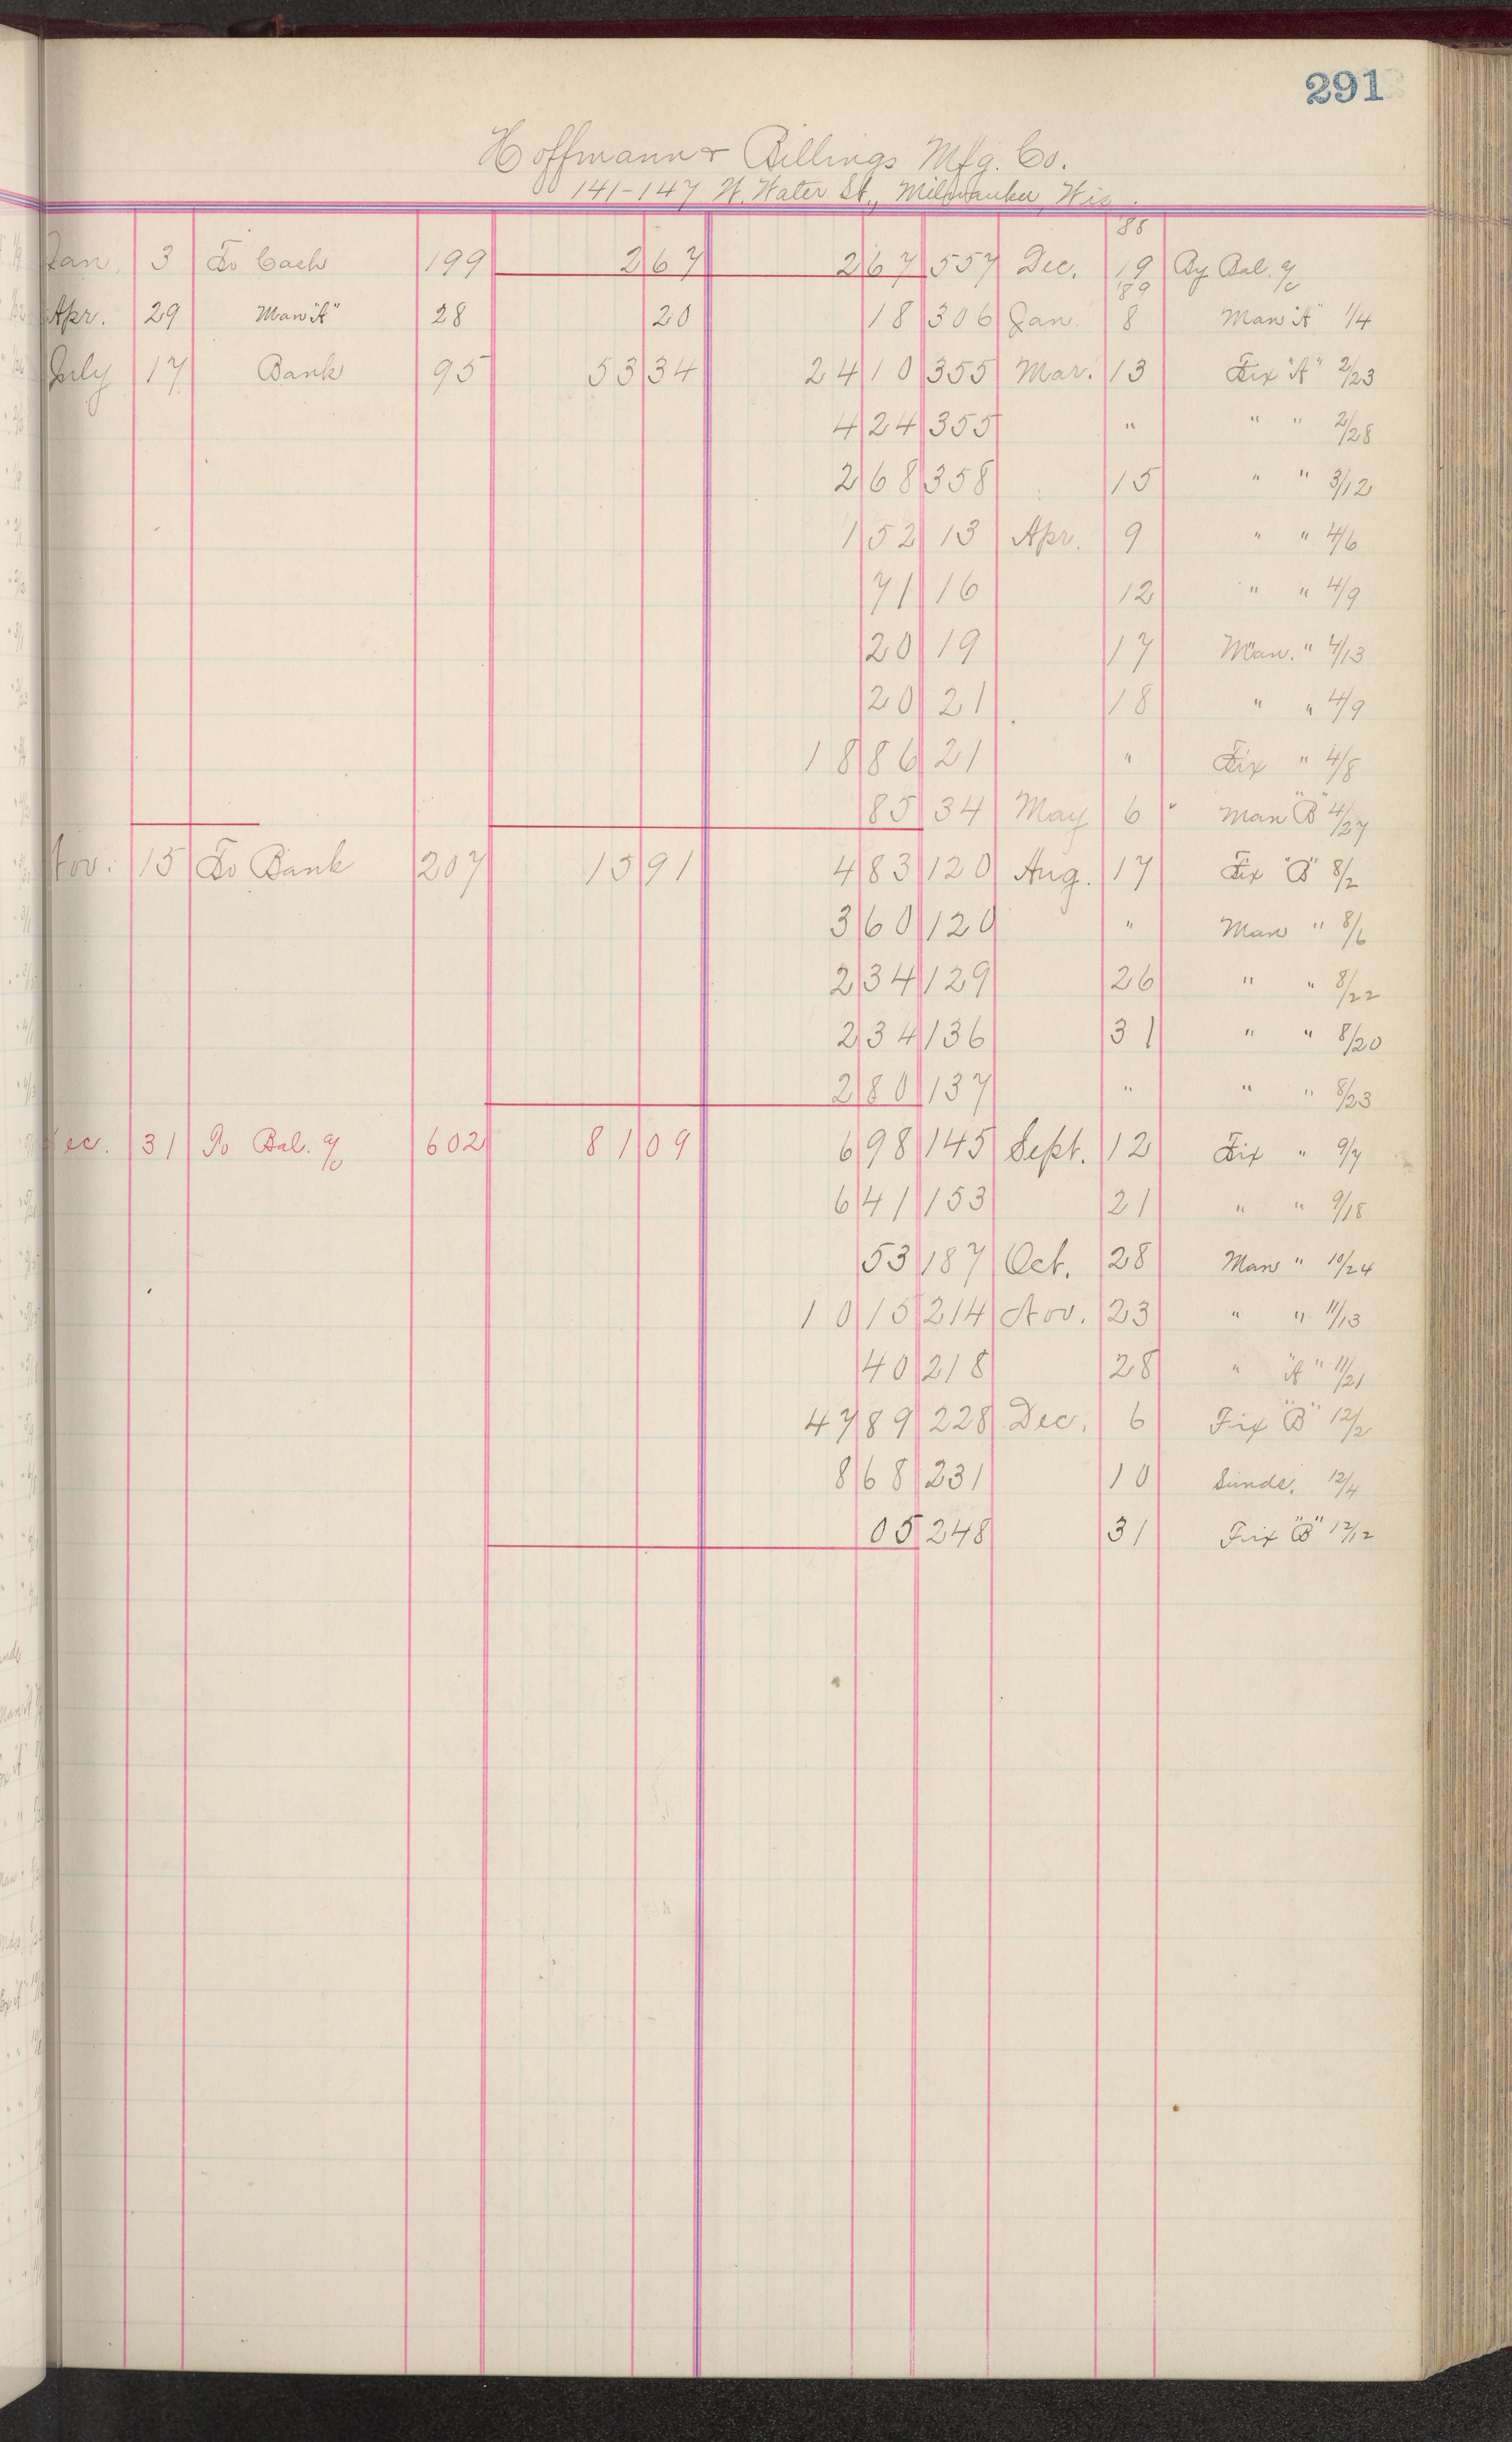 291
Hoffmann & Billings Mfg. Co.
141-147 W. Water St., Milwaukee, Wis.
'88
Jan. 3 To Cash 199 2 67 2 67 557 Dec. 19 By Bal. a/c
'89
Apr. 29 Man "A" 28 20 18 306 Jan. 8 Man "A" 1/4
July 17 Bank 95 53 34 24 10 355 Mar. 13 Fix "A" 2/23
4 24 355 " " " 2/28
2 68 358 15 " " 3/12
1 52 13 Apr. 9 " " 4/6
71 16 12 " " 4/9
20 19 17 Man. " 4/13
20 21 18 " " 4/9
18 86 21 " Fix " 4/8
85 34 May 6 " Man "B" 4/27
Nov. 15 To Bank 207 15 91 4 83 120 Aug. 17 Fix "B" 8/2
3 60 120 " Man " 8/6
2 34 129 26 " " 8/22
2 34 136 31 " " 8/20
2 80 137 " " " 8/23
Dec. 31 To Bal. a/c 602 81 09 6 98 145 Sept. 12 Fix " 9/7
6 41 153 21 " " 9/18
53 187 Oct. 28 Man " 10/24
10 15 214 Nov. 23 " " 11/13
40 218 28 " "A" 11/21
47 89 228 Dec. 6 Fix "B" 12/2
8 68 231 10 Sunds. 12/4
05 248 31 Fix "B" 12/12